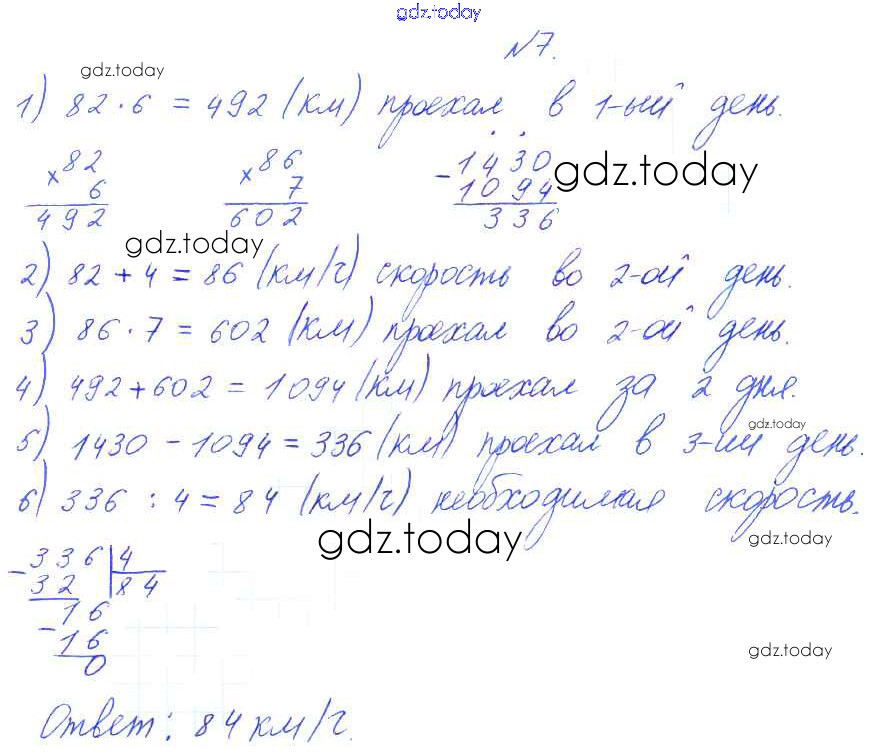 gdz.today
№7.
gdz.today
1) 82 · 6 = 492 (км) проехал в 1-ый день.
× 82 × 86 - 1430 gdz.today
6 7 1094
492 602 336
gdz.today
2) 82 + 4 = 86 (км/ч) скорость во 2-ой день.
3) 86 · 7 = 602 (км) проехал во 2-ой день.
4) 492 + 602 = 1094 (км) проехал за 2 дня.
gdz.today
5) 1430 - 1094 = 336 (км) проехал в 3-ий день.
6) 336 : 4 = 84 (км/ч) необходимая скорость.
gdz.today gdz.today
- 336 | 4
32 | 84
- 16
16
0
gdz.today
Ответ: 84 км/ч.